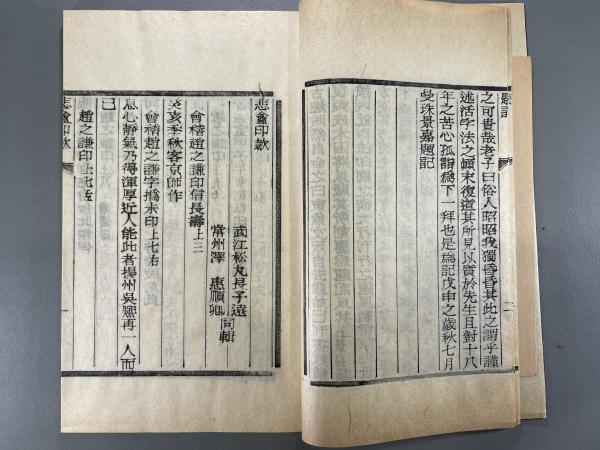 題記
之可貴哉老子曰俗人昭昭我獨昏昏其此之謂乎謹
述活字法之顛末復道其所見以質於先生且對十八
年之苦心孤詣爲下一拜也是爲記戊申之歲秋七月
曼珠景嘉題記
悲盦印款
武江松丸長子遠
常州澤惠順卿同輯
會稽趙之謙印信長壽上三
癸亥季秋客京師作
會稽趙之謙字撝未印上七右
息心靜氣乃得渾厚近人能此者揚州吳熙再一人而
已
趙之謙印上七左
悲盦印款